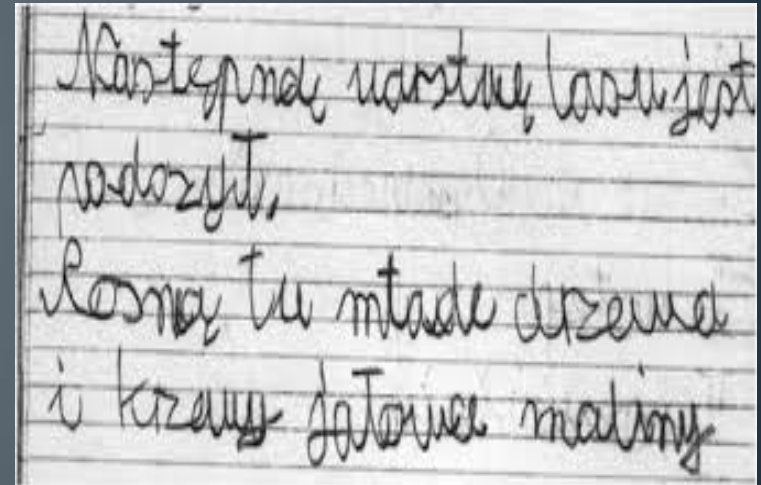 Następną warstwę lasu jest
podszyt.
Rosną tu młade drzewa
i krzewy jałowca maliny